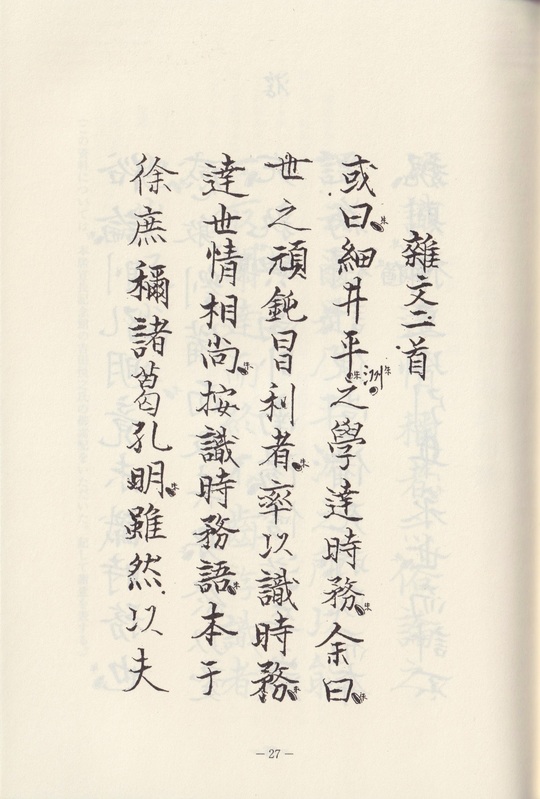 雜文二首
或曰細井平洲之學達時務余曰
世之頑鈍冒利者率以識時務
達世情相尚按識時務語本于
徐庶穪諸葛孔明雖然以夫
— 27 —